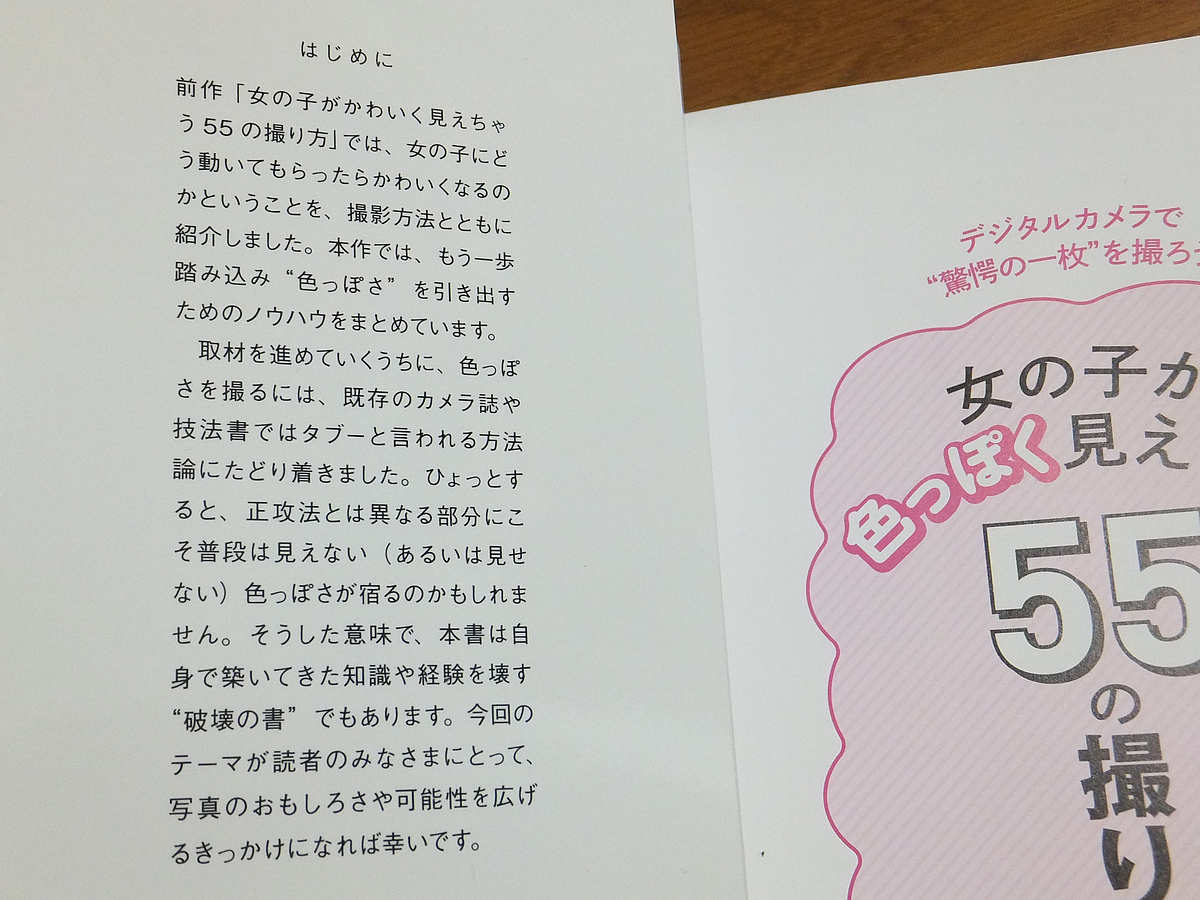 はじめに
前作「女の子がかわいく見えちゃ
う 55 の撮り方」では、女の子にど
う動いてもらったらかわいくなるの
かということを、撮影方法とともに
紹介しました。本作では、もう一歩
踏み込み “色っぽさ” を引き出す
ためのノウハウをまとめています。
　取材を進めていくうちに、色っぽ
さを撮るには、既存のカメラ誌や
技法書ではタブーと言われる方法
論にたどり着きました。ひょっとす
ると、正攻法とは異なる部分にこ
そ普段は見えない（あるいは見せ
ない）色っぽさが宿るのかもしれま
せん。そうした意味で、本書は自
身で築いてきた知識や経験を壊す
“破壊の書” でもあります。今回の
テーマが読者のみなさまにとって、
写真のおもしろさや可能性を広げ
るきっかけになれば幸いです。
デジタルカメラで
“驚愕の一枚”を撮ろう
女の子が
色っぽく見え
55
の
撮
り